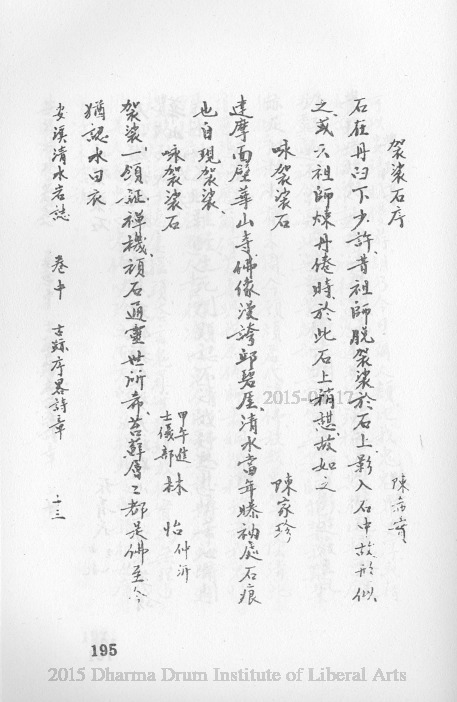 袈裟石序
陳
石在丹臼下少許、昔祖師脫袈裟於石上、影入石中、故形似
之、或云祖師煉丹倦時、於此石上稍憩故如之
咏袈裟石
陳家珍
達摩面壁華山寺、佛像漫誇邱碧崖、清水當年曝衲處、石痕
也自現袈裟、
咏袈裟石
甲午進士儀部 林怡 仲沂
袈裟一領証禪機、頑石通靈世所希、苔蘚層々都是佛、至今
猶認水田衣
安溪清水岩誌 卷中 古跡序畧詩章 十三
195
2015-0 17
2015 Dharma Drum Institute of Liberal Arts